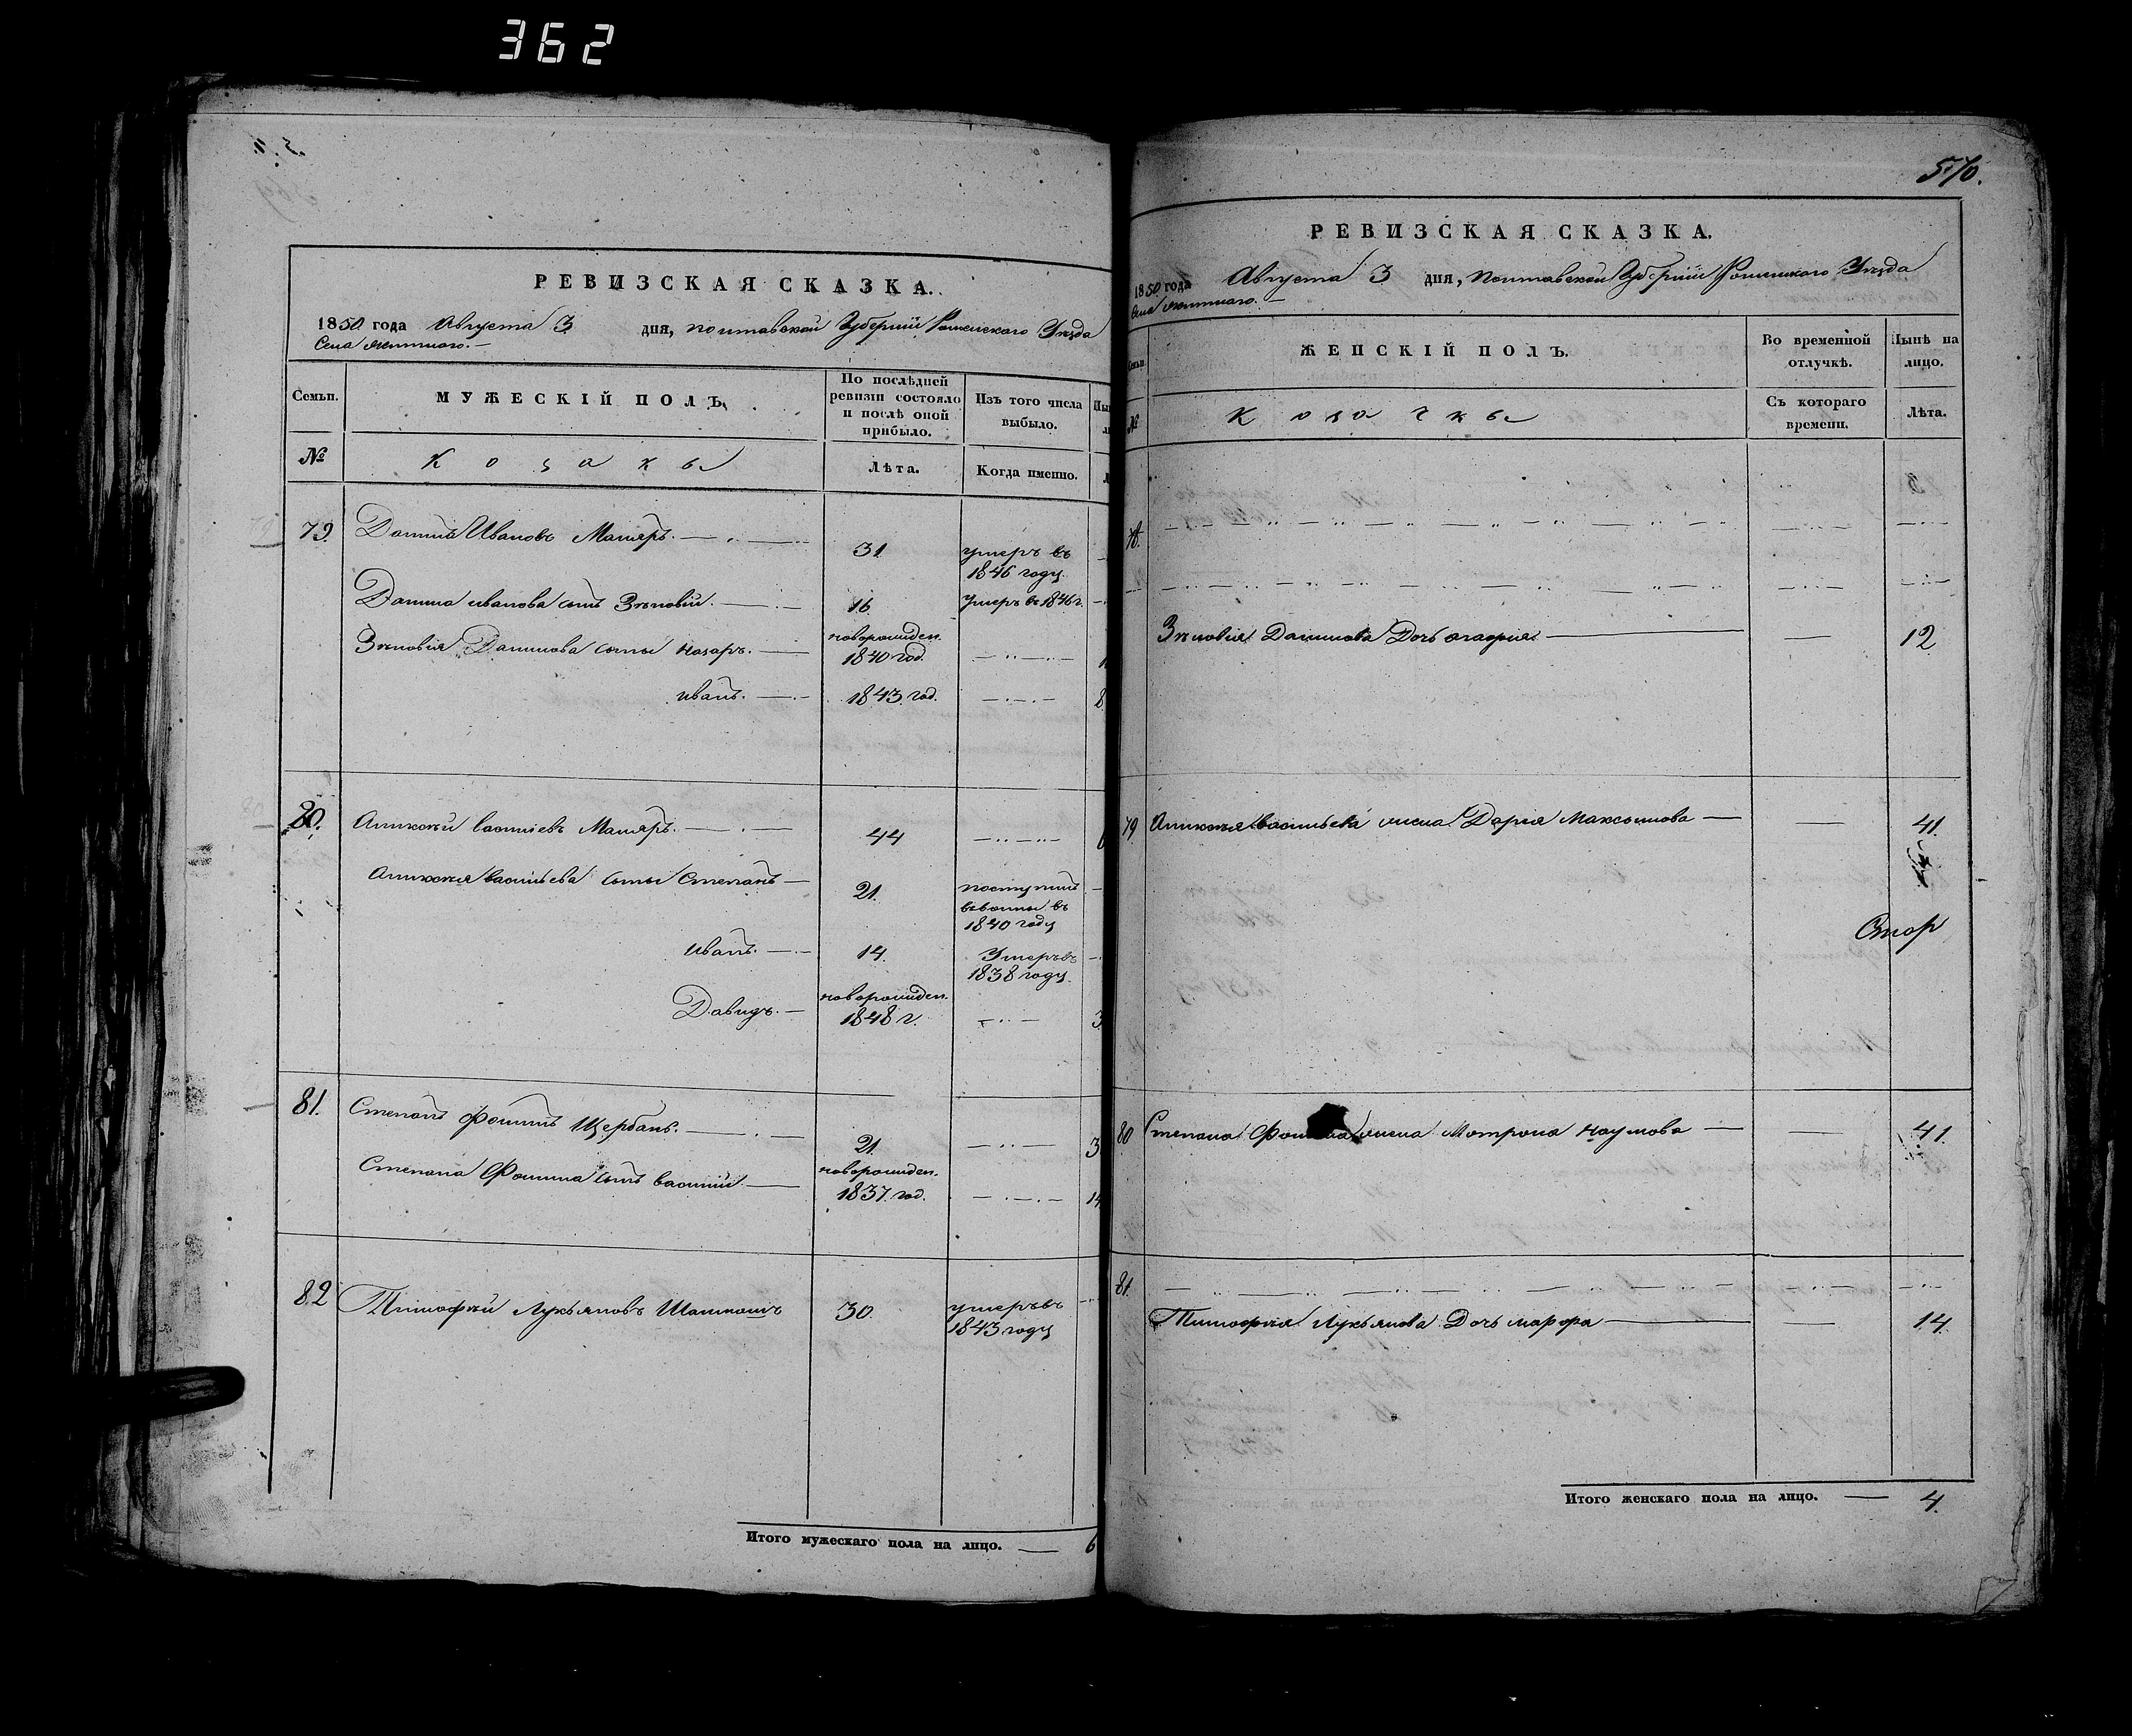 362
РЕВИЗСКАЯ СКАЗКА.
1850 года Августа 3 дня, Полтавской Губернии Роменского Уезда
Села
Семьи. МУЖЕСКІЙ ПОЛЪ. По послѣдней ревизіи состояло и послѣ оной прибыло. Изъ того числа выбыло.
№ Козаки Лѣта. Когда именно.
79. Данилъ Ивановъ Маляръ. 31 умеръ въ
1846 году.
Данила Иванова сынъ Зѣновій. 16. Умеръ въ 1846 г.
Зѣновія Данилова сыны Назаръ. новорожден.
1840 год.
Иванъ. 1843 год. 8.
80. Аликсѣй Василіевъ Маляръ. 44
Аликсѣя Васильева сыны Степанъ 21. поступилъ
въ
1840 году
Иванъ. 14. Умеръ въ
1838 году.
Давидъ. новорожден.
1848 г. 3
81. Степанъ Фоминъ Щербань. 21. 3
Степана Фомина сынъ Василий новорожден.
1837 год. 14
82 Тимофѣй Лукьяновъ 30. умеръ въ
1843 году
Итого мужескаго пола на лицо. 6
570.
РЕВИЗСКАЯ СКАЗКА.
1850 года Августа 3 дня, Полтавской Губернии Роменского Уезда
Села
Семьи. ЖЕНСКІЙ ПОЛЪ. Во временной отлучкѣ. Нынѣ на лицо.
№ Козачки Съ котораго времени. Лѣта.
78.
Зѣновія Данилова Дочь Агафия 12
79 Аликсѣя Васильева жена Дария Максимова 41.
80 Степана Фомина жена Мотрона Наумова 41.
81.
Тимофѣя Лукьянова Дочь Марфа 14.
Итого женскаго пола на лицо. 4.